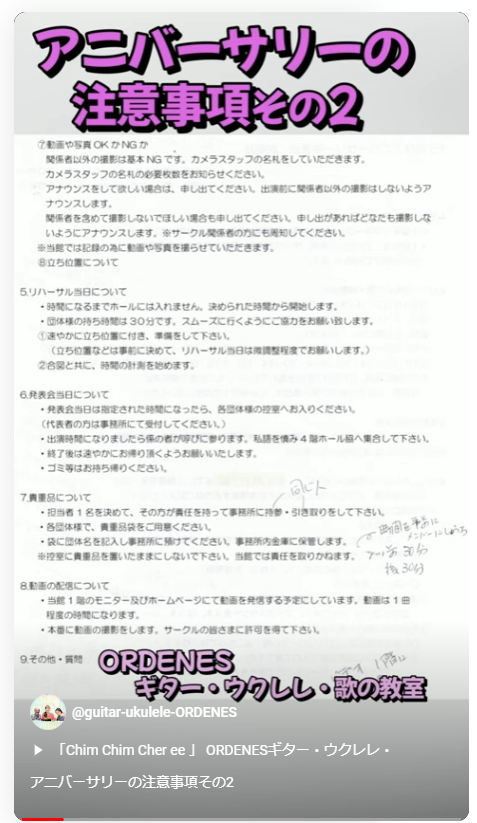 アニバーサリーの
注意事項その2
⑦動画や写真 OK か NG か
関係者以外の撮影は基本 NG です。カメラスタッフの名札をしていただきます。
カメラスタッフの名札の必要枚数をお知らせください。
アナウンスをして欲しい場合は、申し出てください。出演前に関係者以外の撮影はしないようア
ナウンスします。
関係者を含めて撮影しないでほしい場合も申し出てください。申し出があればどなたも撮影しな
いようにアナウンスします。※サークル関係者の方にも周知してください。
※当館では記録の為に動画や写真を撮らせていただきます。
⑧立ち位置について
5.リハーサル当日について
・時間になるまでホールには入れません。決められた時間から開始します。
・団体様の持ち時間は30分です。スムーズに行くようにご協力をお願い致します。
①速やかに立ち位置に付き、準備をして下さい。
(立ち位置などは事前に決めて、リハーサル当日は微調整程度でお願いします。)
②合図と共に、時間の計測を始めます。
6.発表会当日について
・発表会当日は指定された時間になったら、各団体様の控室へお入りください。
(代表者の方は事務所にて受付してください。)
・出演時間になりましたら係の者が呼びに参ります。私語を慎み4階ホール脇へ集合して下さい。
・終了後は速やかにお帰り頂くようお願いいたします。
・ゴミ等はお持ち帰りください。
同じ人
7.貴重品について
・担当者1名を決めて、その方が責任を持って事務所に持参・引き取りをして下さい。
・各団体様で、貴重品袋をご用意ください。
・袋に団体名を記入し事務所に預けてください。事務所内金庫に保管します。
※控室に貴重品を置いたままにしないで下さい。当館では責任を取りかねます。
前 30分
後 30分
8.動画の配信について
・当館1階のモニター及びホームページにて動画を発信する予定にしています。動画は1曲
程度の時間になります。
・本番に動画の撮影をします。サークルの皆さまに許可を得て下さい。
9.その他・質問
1階に
ORDENES
ギター・ウクレレ・歌の教室
@guitar-ukulele-ORDENES
「Chim Chim Cher ee 」 ORDENESギター・ウクレレ・
アニバーサリーの注意事項その2